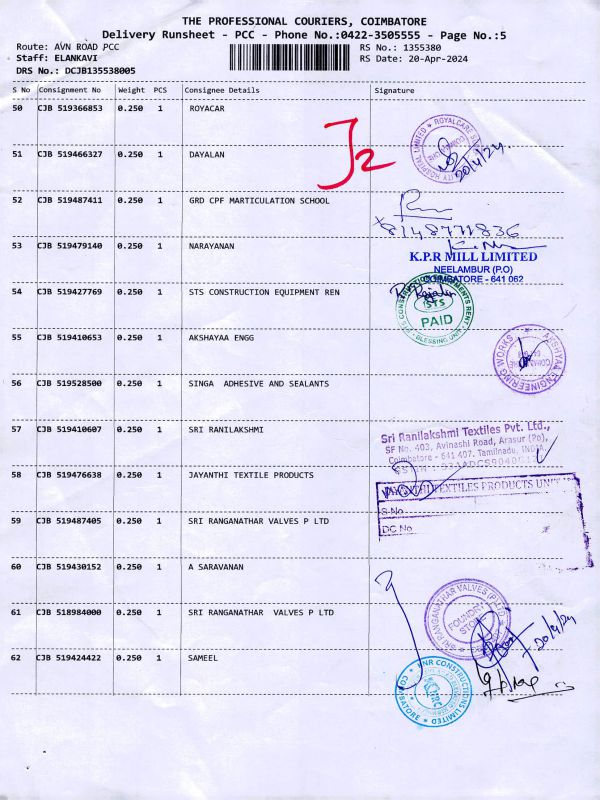 THE PROFESSIONAL COURIERS, COIMBATORE
Delivery Runsheet - PCC - Phone No.:0422-3505555 - Page No.:5
Route: AVN ROAD PCC
RS No.: 1355380
Staff: ELANKAVI
RS Date: 20-Apr-2024
DRS No.: DCJB135538005
S No Consignment No Weight PCS Consignee Details Signature
50 CJB 519366853 0.250 1 ROYACAR
J2
20/4/24
51 CJB 519466327 0.250 1 DAYALAN
52 CJB 519487411 0.250 1 GRD CPF MARTICULATION SCHOOL
8148771836
53 CJB 519479140 0.250 1 NARAYANAN
K.P.R MILL LIMITED
NEELAMBUR (P.O)
COIMBATORE - 641 062
54 CJB 519427769 0.250 1 STS CONSTRUCTION EQUIPMENT REN
STS
PAID
55 CJB 519410653 0.250 1 AKSHAYAA ENGG
AKSHYAA ENGINEERING WORKS
56 CJB 519528500 0.250 1 SINGA ADHESIVE AND SEALANTS
57 CJB 519410607 0.250 1 SRI RANILAKSHMI
Sri Ranilakshmi Textiles Pvt. Ltd.,
SF No. 403, Avinashi Road, Arasur (Po),
Coimbatore - 641 407. Tamilnadu, INDIA
58 CJB 519476638 0.250 1 JAYANTHI TEXTILE PRODUCTS
TEXTILES PRODUCTS UNIT
S.No
DC No
59 CJB 519487405 0.250 1 SRI RANGANATHAR VALVES P LTD
60 CJB 519430152 0.250 1 A SARAVANAN
61 CJB 518984000 0.250 1 SRI RANGANATHAR VALVES P LTD
SRI RANGANATHAR VALVES (P) LTD
FOUNDRY
STORE
20/4/24
62 CJB 519424422 0.250 1 SAMEEL
RNR CONSTRUCTIONS LIMITED
COIMBATORE